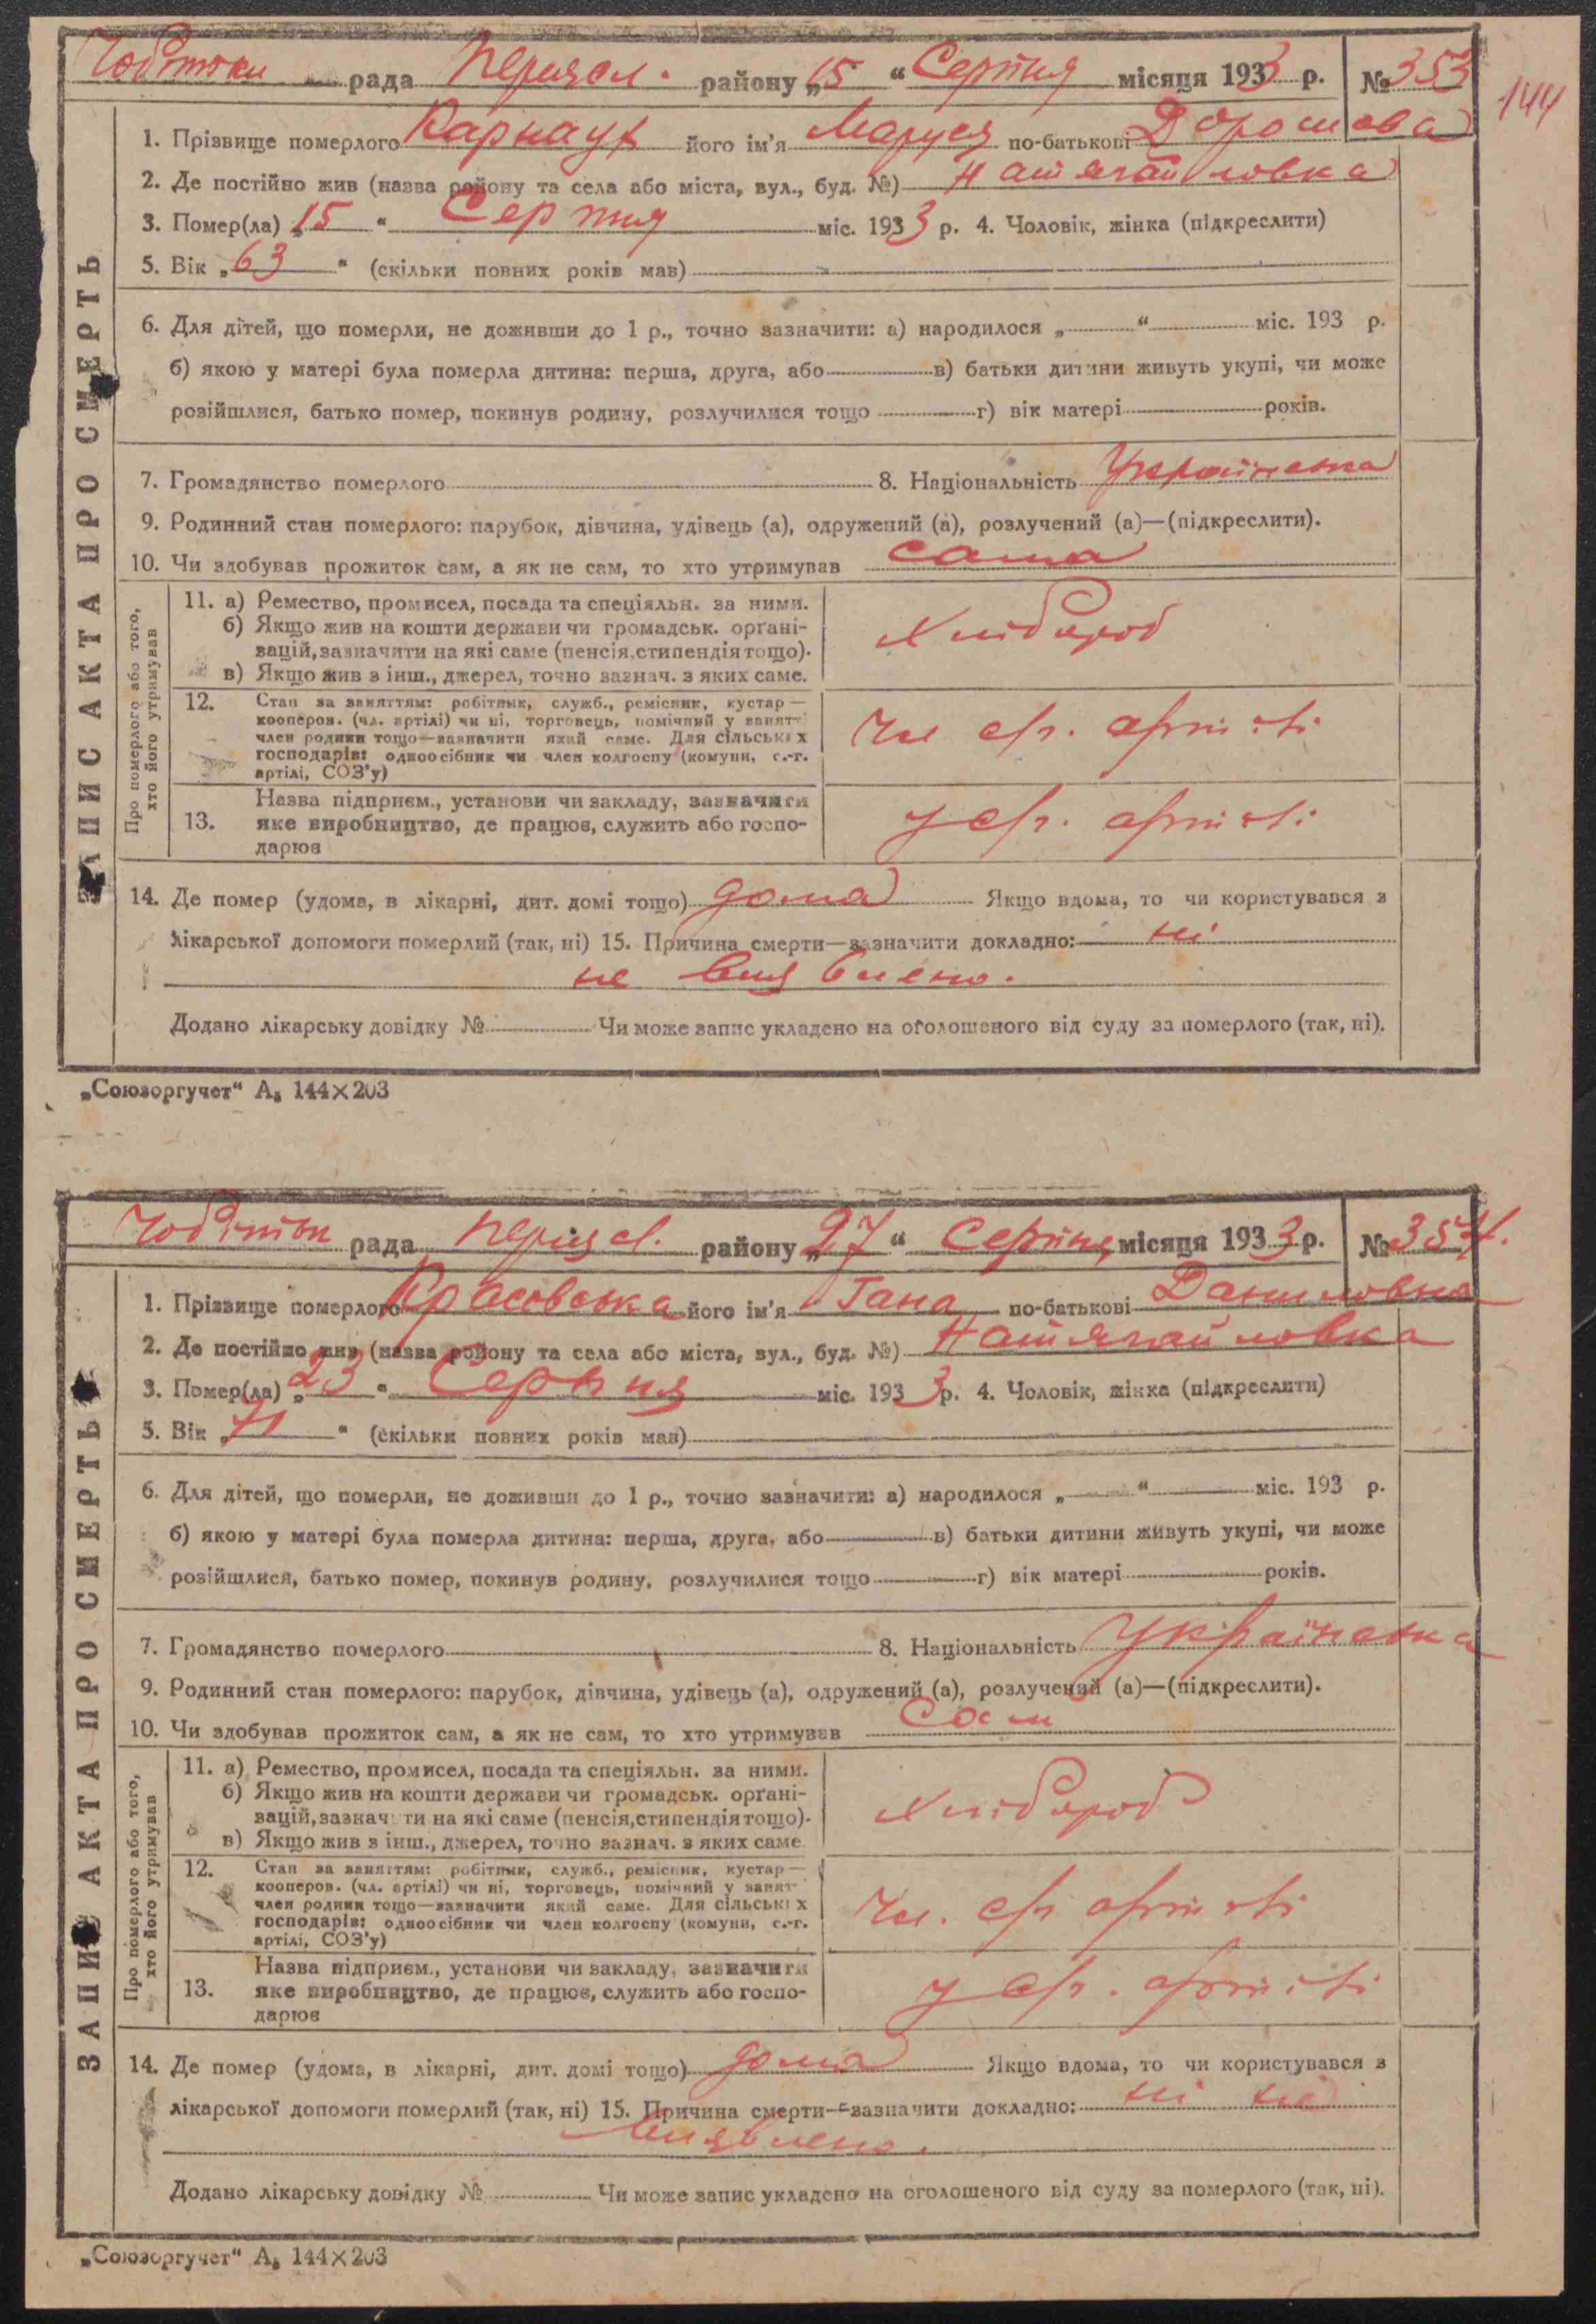 рада району „15 “ Серпня місяця 1933 р. № 353
144
1. Прізвище померлого Карнаух його ім'я Маруся по-батькові Дорошова
2. Де постійно жив (назва району та села або міста, вул., буд. №) Натягайловка
3. Помер(ла) „15 “ Серпня міс. 1933 р. 4. Чоловік, жінка (підкреслити)
5. Вік „63 “ (скільки повних років мав)
6. Для дітей, що померли, не доживши до 1 р., точно зазначити: а) народилося „ “ міс. 193 р.
б) якою у матері була померла дитина: перша, друга, або в) батьки дитини живуть укупі, чи може
розійшлися, батько помер, покинув родину, розлучилися тощо г) вік матері років.
7. Громадянство померлого 8. Національність Українська
9. Родинний стан померлого: парубок, дівчина, удівець (а), одружений (а), розлучений (а)—(підкреслити).
10. Чи здобував прожиток сам, а як не сам, то хто утримував сама
ЗАПИС АКТА ПРО СМЕРТЬ
Про померлого або того, хто його утримував
11. а) Ремество, промисел, посада та спеціяльн. за ними.
б) Якщо жив на кошти держави чи громадськ. орґані-
зацій, зазначити на які саме (пенсія, стипендія тощо).
в) Якщо жив з інш., джерел, точно зазнач. з яких саме.
Хлібороб
12. Стан за заняттям: робітник, служб., ремісник, кустар—
кооперов. (чл. артілі) чи ні, торговець, помічний у занят-
член родини тощо—зазначити який саме. Для сільських
господарів: одноосібник чи член колгоспу (комуни, с.-г.
артілі, СОЗ'у)
Чл с/г. артілі
13. Назва підприєм., установи чи закладу, зазначити
яке виробництво, де працює, служить або госпо-
дарює
у с/г. артілі
14. Де помер (удома, в лікарні, дит. домі тощо) дома Якщо вдома, то чи користувався з
лікарської допомоги померлий (так, ні) 15. Причина смерти—зазначити докладно: ні
не виявлено.
Додано лікарську довідку № Чи може запис укладено на оголошеного від суду за померлого (так, ні).
„Союзоргучет“ А₅ 144×203
рада району „27 “ Серпня місяця 1933 р. № 354.
1. Прізвище померлого Красовська його ім'я Гана по-батькові Даниловна
2. Де постійно жив (назва району та села або міста, вул., буд. №) Натягайловка
3. Помер(ла) „23 “ Серпня міс. 1933 р. 4. Чоловік, жінка (підкреслити)
5. Вік „71 “ (скільки повних років мав)
6. Для дітей, що померли, не доживши до 1 р., точно зазначити: а) народилося „ “ міс. 193 р.
б) якою у матері була померла дитина: перша, друга, або в) батьки дитини живуть укупі, чи може
розійшлися, батько помер, покинув родину, розлучилися тощо г) вік матері років.
7. Громадянство померлого 8. Національність Українська
9. Родинний стан померлого: парубок, дівчина, удівець (а), одружений (а), розлучений (а)—(підкреслити).
10. Чи здобував прожиток сам, а як не сам, то хто утримував
ЗАПИС АКТА ПРО СМЕРТЬ
Про померлого або того, хто його утримував
11. а) Ремество, промисел, посада та спеціяльн. за ними.
б) Якщо жив на кошти держави чи громадськ. орґані-
зацій, зазначити на які саме (пенсія, стипендія тощо).
в) Якщо жив з інш., джерел, точно зазнач. з яких саме
Хлібороб
12. Стан за заняттям: робітник, служб., ремісник, кустар—
кооперов. (чл. артілі) чи ні, торговець, помічний у занят-
член родини тощо—зазначити який саме. Для сільських
господарів: одноосібник чи член колгоспу (комуни, с.-г.
артілі, СОЗ'у)
Чл. с/г артілі
13. Назва підприєм., установи чи закладу, зазначити
яке виробництво, де працює, служить або госпо-
дарює
у с/г. артілі
14. Де помер (удома, в лікарні, дит. домі тощо) дома Якщо вдома, то чи користувався з
лікарської допомоги померлий (так, ні) 15. Причина смерти—зазначити докладно: ні не
виявлено.
Додано лікарську довідку № Чи може запис укладено на оголошеного від суду за померлого (так, ні).
„Союзоргучет“ А₅ 144×203